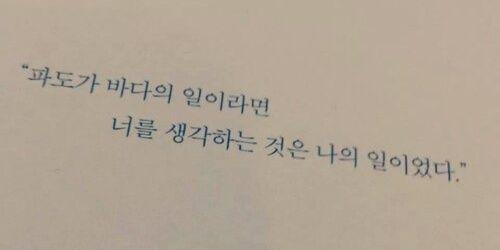 “파도가 바다의 일이라면
너를 생각하는 것은 나의 일이었다.”